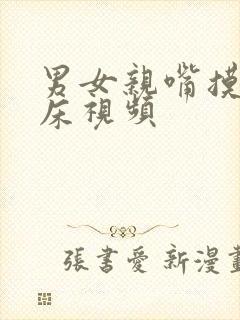 男女親嘴摸
床視頻
張書愛 新漫畫